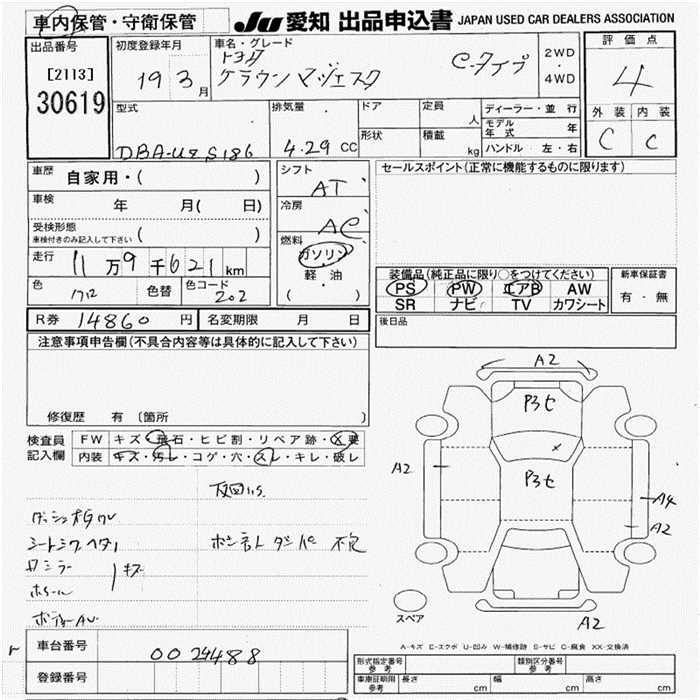 車内保管・守衛保管 JU 愛知 出品申込書 JAPAN USED CAR DEALERS ASSOCIATION
出品番号
[2113]
30619
初度登録年月
19 3月
車名・グレード
トヨタ
クラウンマジェスタ Cタイプ
2WD
・
4WD
評価点
4
外装 内装
C C
型式
DBA-UZS186
排気量
4.29 CC
ドア
形状
定員 人
積載 kg
ディーラー・並行
モデル年式 年
ハンドル 左・右
車歴 自家用・( )
車検 年 月( 日)
受検形態
車検付きのみ記入して下さい ( )
走行 11万9千621km
色 クロ 色替 色コード 202
シフト
AT
冷房
AC
燃料
ガソリン
軽・油
( )
セールスポイント(正常に機能するものに限ります)
装備品(純正品に限り○をつけてください)
PS PW エアB AW
SR ナビ TV カワシート
新車保証書
有・無
後日品
R券 14860円 名変期限 月 日
注意事項申告欄(不具合内容等は具体的に記入して下さい)
修復歴 有 〔箇所 〕
検査員
記入欄
FW キズ・飛石・ヒビ割・リペア跡・X要
内装 キズ・汚レ・コゲ・穴・スレ・キレ・破レ
ボンネットダンパー不良
キズ
A2
P3セ
P3セ
A2
A4
A2
A2
スペア
A-キズ E-エクボ U-凹み W-補修跡 S-サビ C-腐食 XX-交換済
車台番号 0024488
登録番号
形式指定番号
参考
類別区分番号
参考
車庫証明用
参考
長さ cm 幅 cm 高さ cm